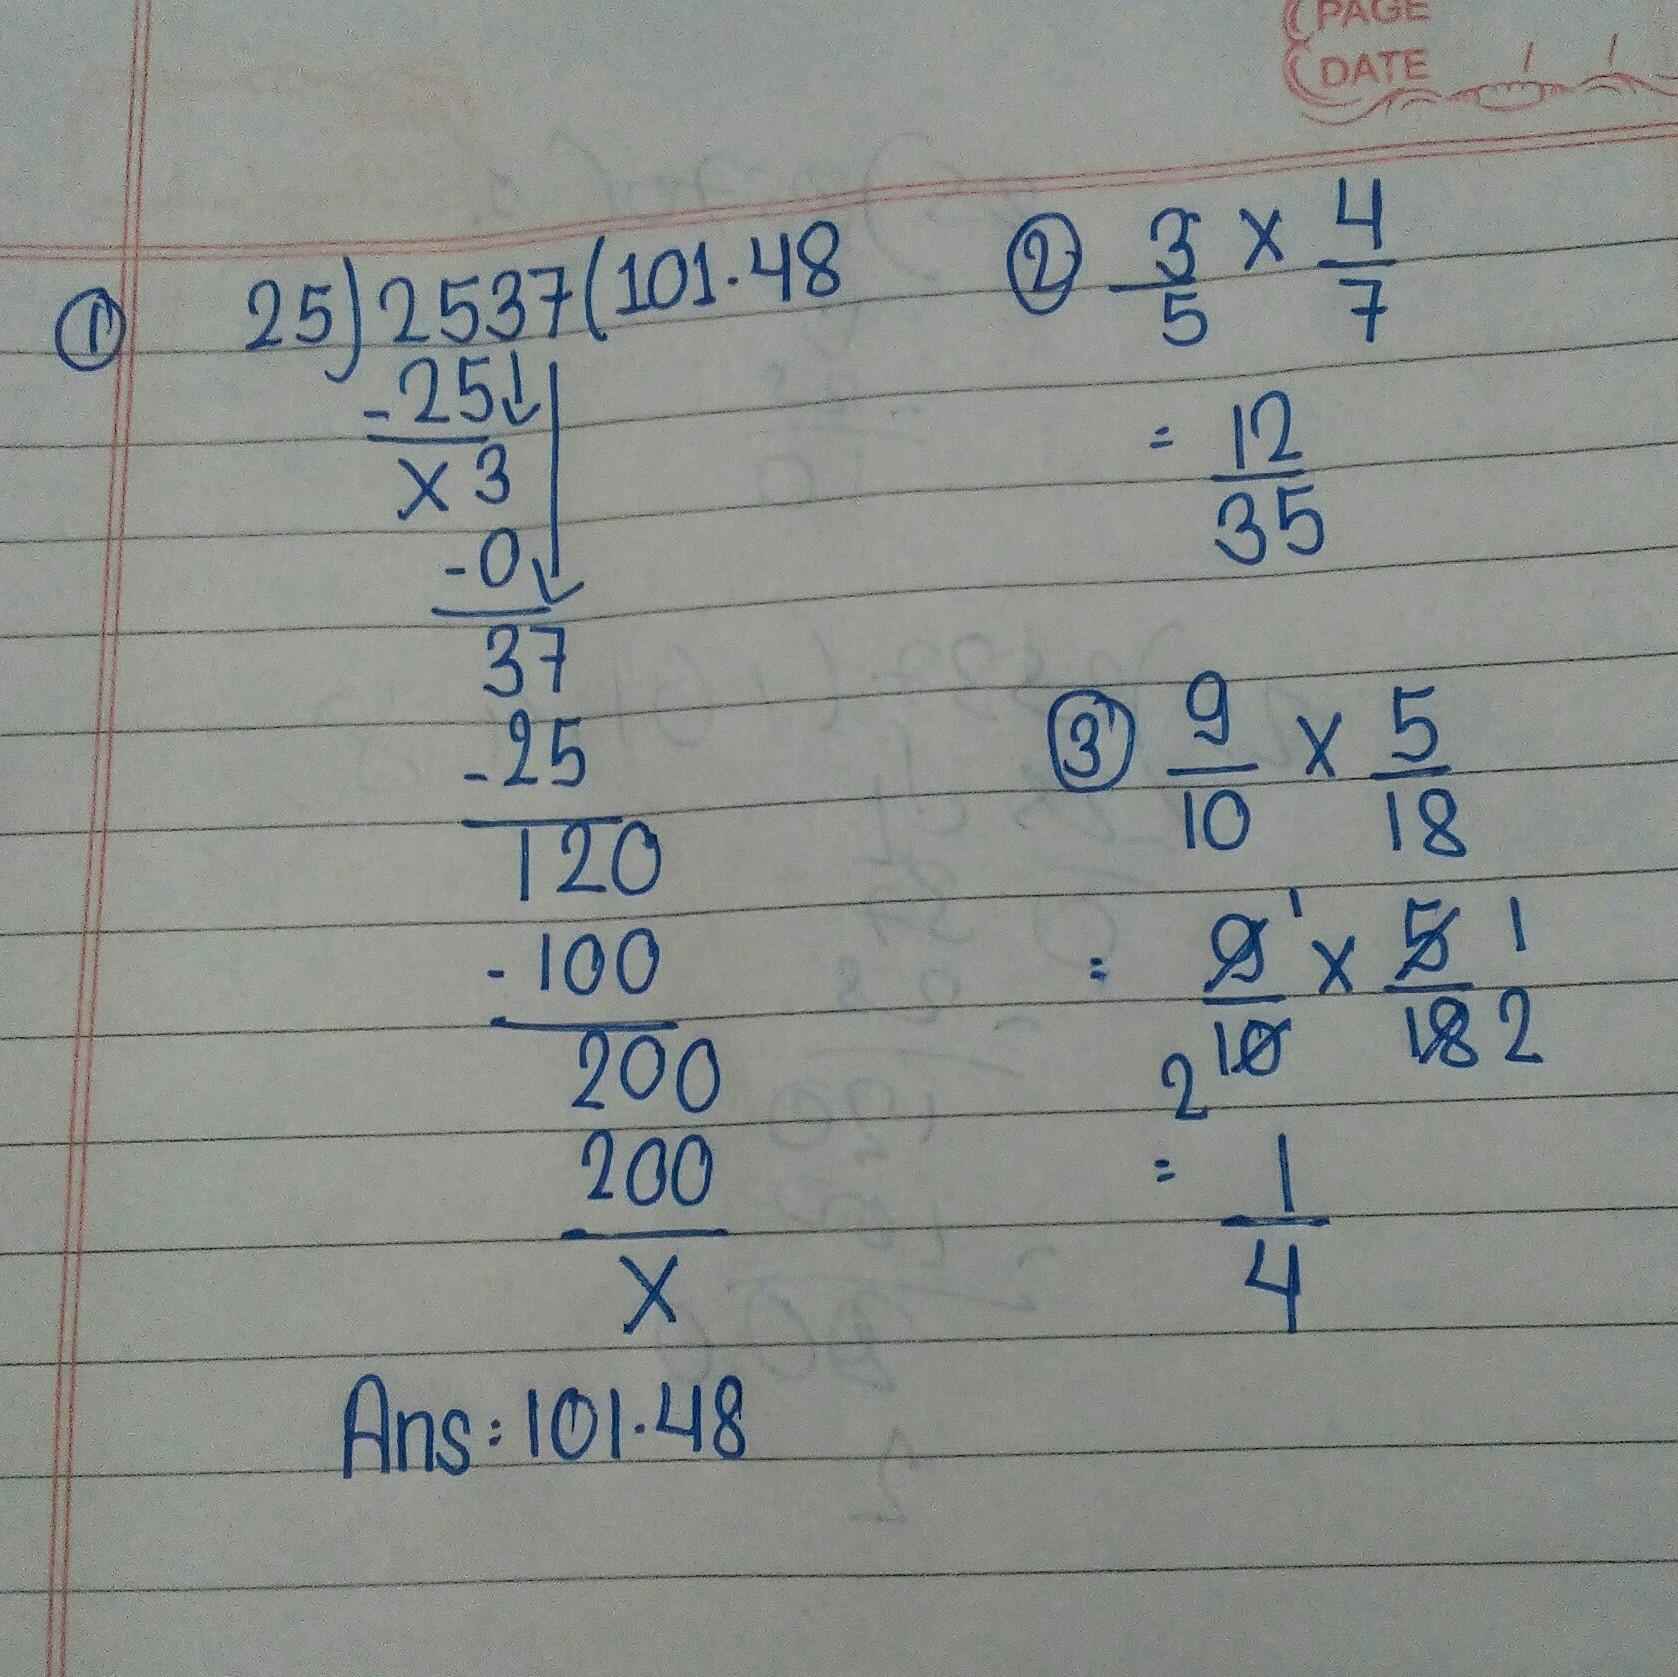 PAGE
DATE / /
① 25)2537(101.48
-25↓
x 3
-0↓
37
-25
120
-100
200
200
x
Ans: 101.48
② 3/5 x 4/7
= 12/35
③ 9/10 x 5/18
= 9 1 x 5 1
2 10 18 2
= 1/4